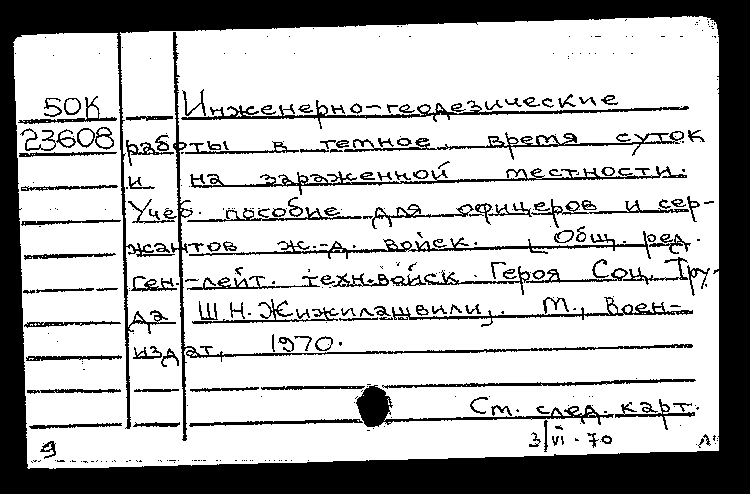 50К Инженерно-геодезические
23608 работы в темное время суток
и на зараженной местности.
Учеб. пособие для офицеров и сер-
жантов ж.-д. войск. [Общ. ред.
ген.-лейт. техн. войск Героя Соц. Тру-
да Ш.Н. Жижилашвили]. М., Воен-
издат, 1970.
См. след. карт.
3/VI-70
9